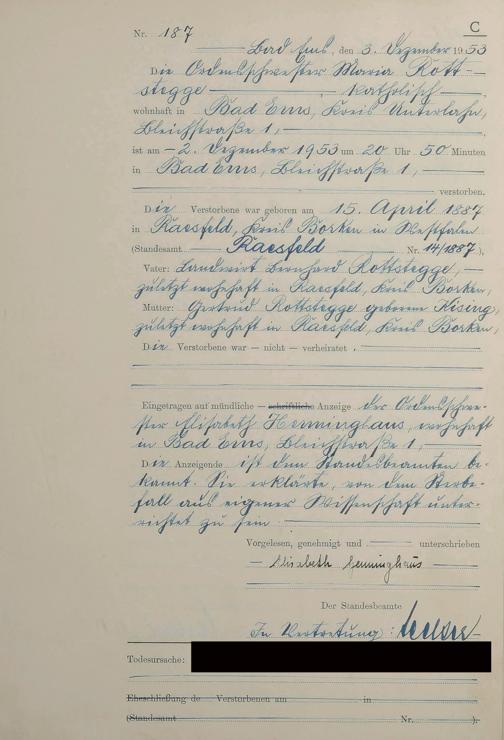 C
Nr. 187
Bad Ems, den 3. Dezember 1953
Die Ordensschwester Maria Rott-
stegge katholisch,
wohnhaft in Bad Ems, Kreis Unterlahn,
Bleichstraße 1,
ist am 2. Dezember 1953 um 20 Uhr 50 Minuten
in Bad Ems, Bleichstraße 1,
verstorben.
Die Verstorbene war geboren am 15. April 1887
in Raesfeld, Kreis Borken in Westfalen
(Standesamt Raesfeld Nr. 14/1887).
Vater: Landwirt Bernhard Rottstegge,
zuletzt wohnhaft in Raesfeld, Kreis Borken,
Mutter: Gertrud Rottstegge geborene Kising,
zuletzt wohnhaft in Raesfeld, Kreis Borken,
Die Verstorbene war — nicht — verheiratet.
Eingetragen auf mündliche — schriftliche Anzeige der Ordensschwe-
ster Elisabeth Henninghaus, wohnhaft
in Bad Ems, Bleichstraße 1,
Die Anzeigende ist dem Standesbeamten be-
kannt. Sie erklärte, von dem Sterbe-
fall aus eigener Wissenschaft unter-
richtet zu sein
Vorgelesen, genehmigt und unterschrieben
Elisabeth Henninghaus
Der Standesbeamte
In Vertretung:
Todesursache:
Eheschließung de Verstorbenen am in
(Standesamt Nr. ).